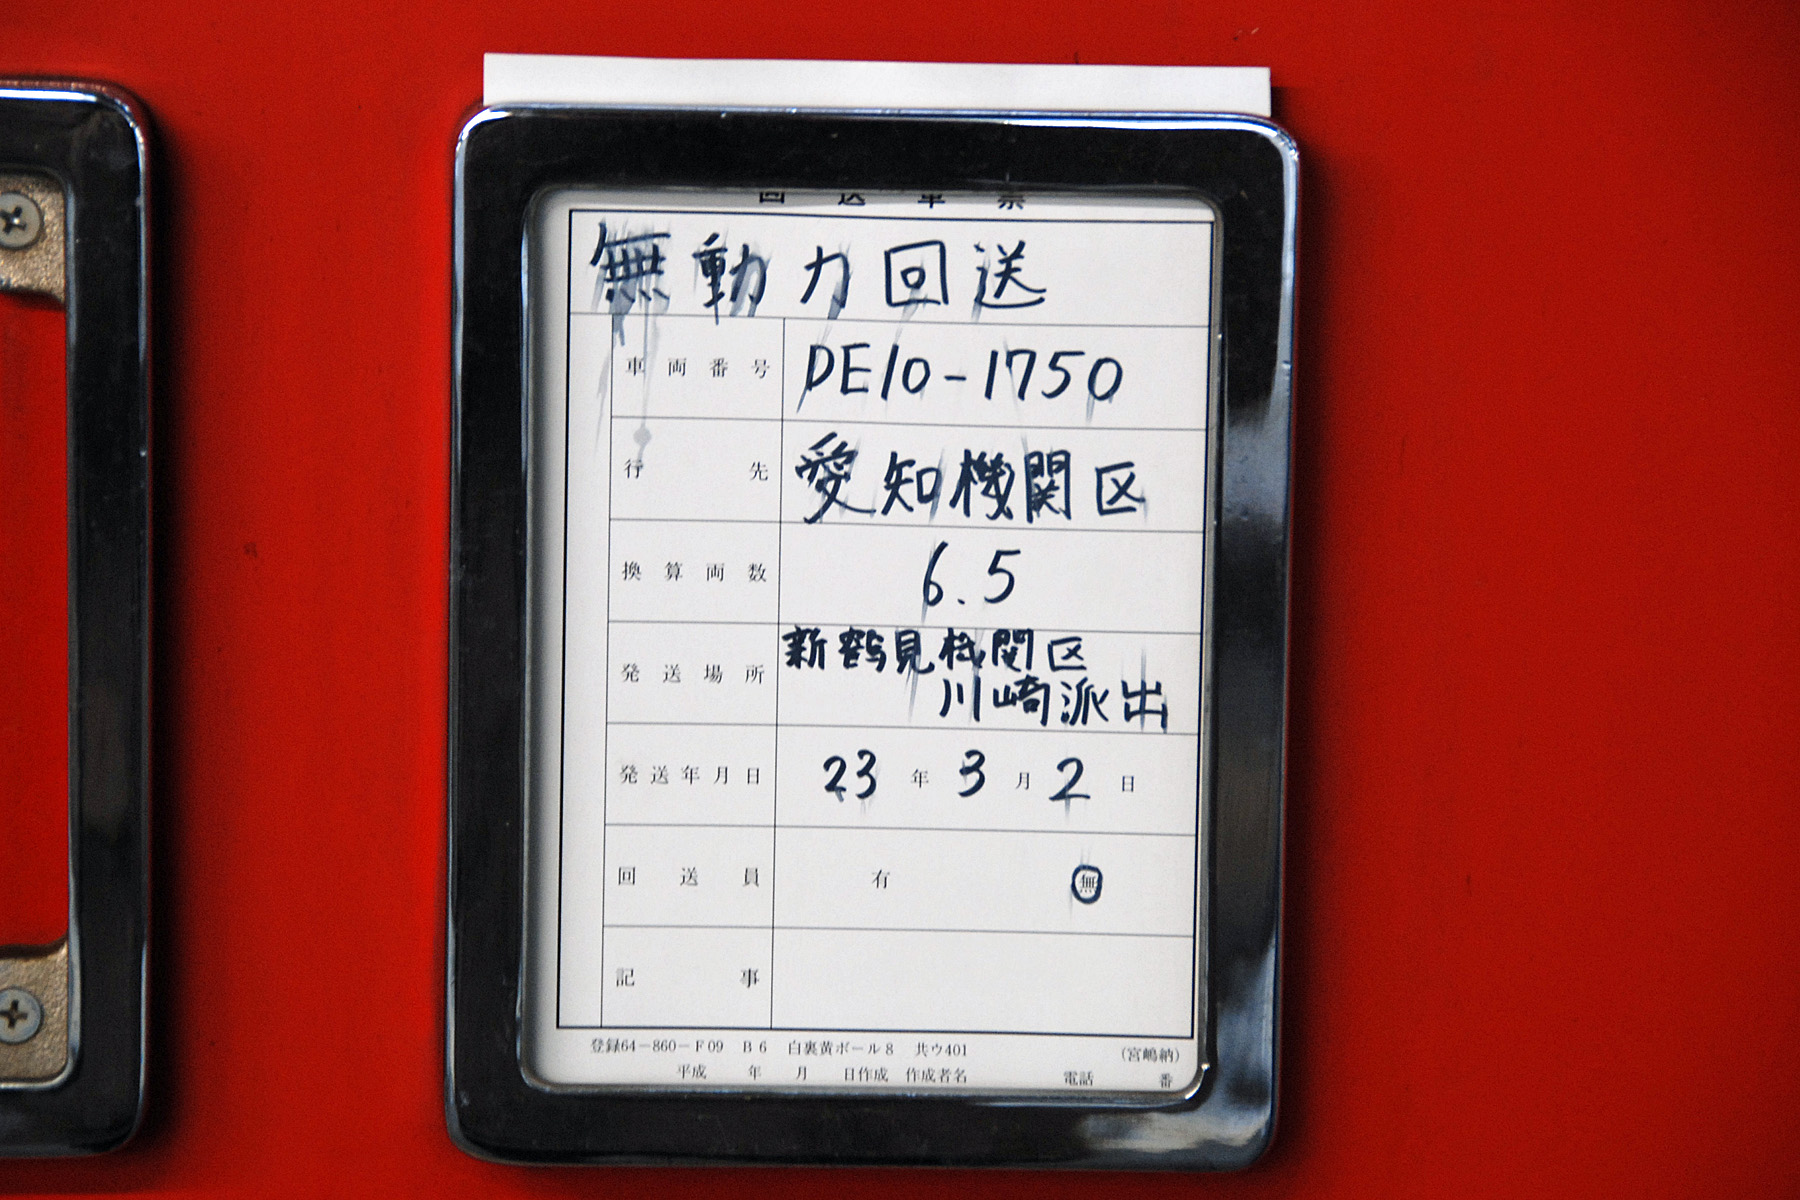 回送車票
無動力回送
車両番号 DE10-1750
行先 愛知機関区
換算両数 6.5
発送場所 新鶴見機関区
川崎派出
発送年月日 23年3月2日
回送員 有 無
記事
登録64-860-F09 B6 白裏黄ボール8 共ウ401 (宮嶋納)
平成 年 月 日作成 作成者名 電話 番